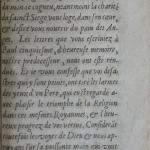 de mon ce cogneu, neantmoins la charité
du sainct Siege vous loge, dans son cœur,
et desire vous nourrir du pain des An-
ges. Les lettres que vous escriuiez à
Paul cinquiesme, d'heureuse memoire,
nostre predecesseur, nous ont esté ren-
dües. Et ie vous confesse que vos desa-
stres qui y sont peints, ont tiré les larmes
des yeux d'vn Pere, qui eust regardé a-
uec plaisir le triomphe de la Religion
dans ces mesmes Royaumes, et l'heu-
reux progrez de vos vertus. Considerāt
toutesfois les voyes de Dieu, et nous ap-
puyans sur sa puissante main, qui